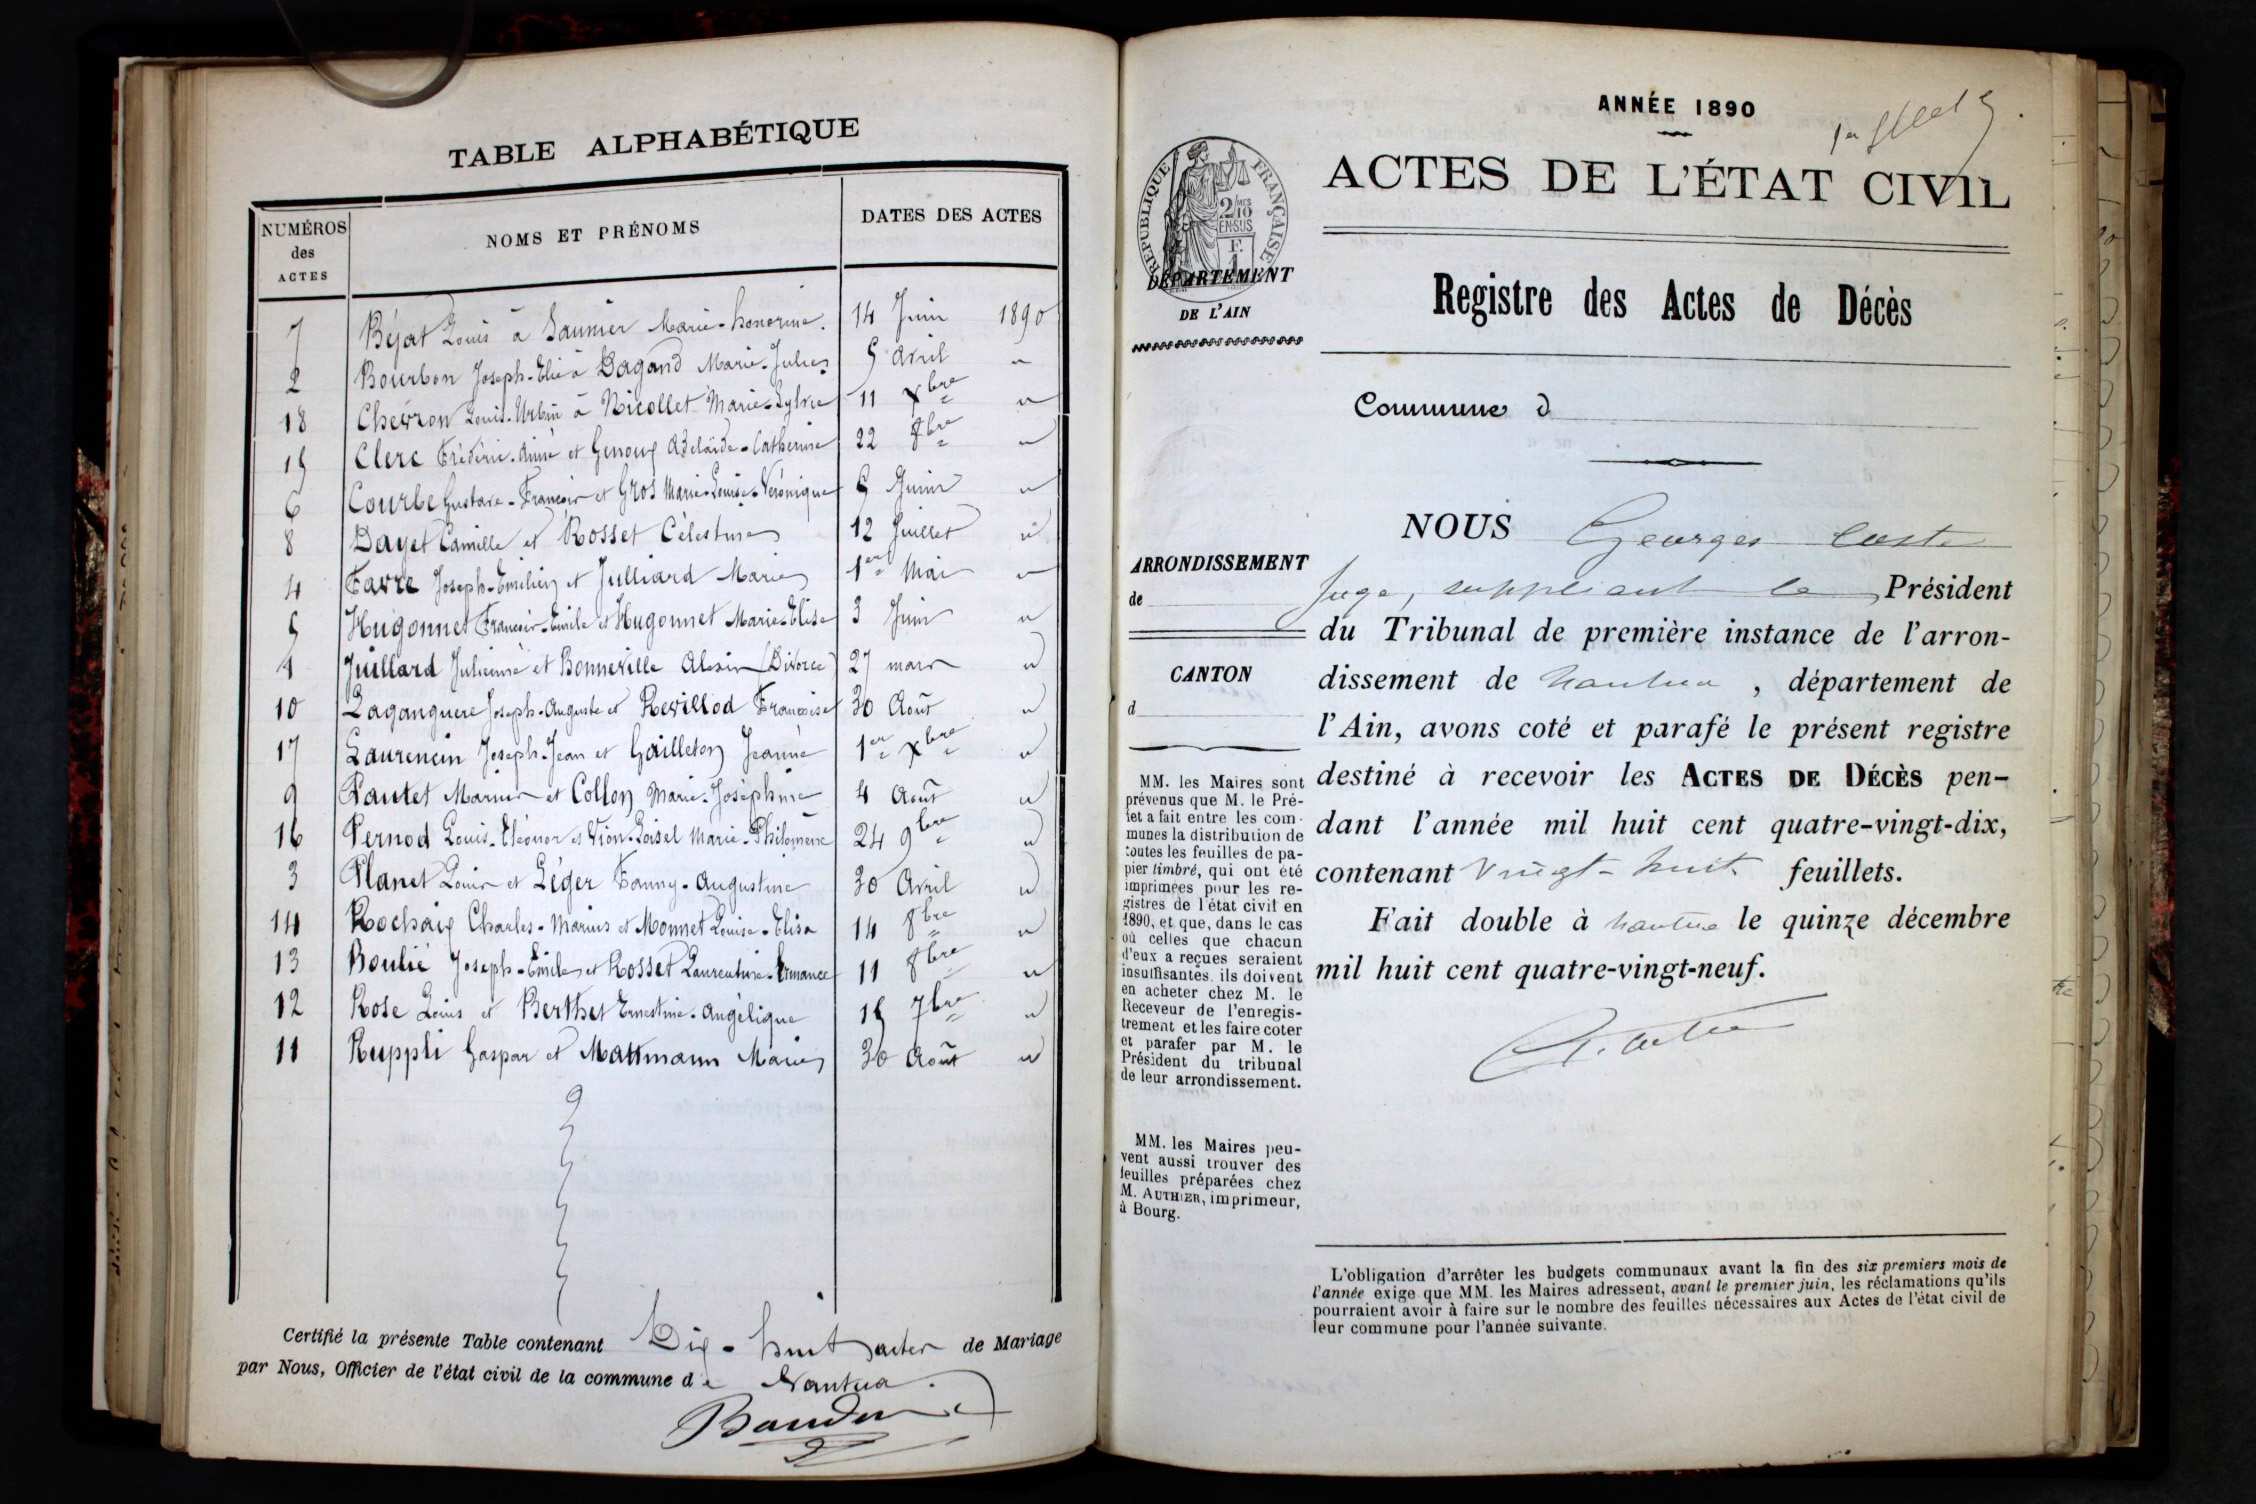 TABLE ALPHABÉTIQUE
NUMÉROS des ACTES | NOMS ET PRÉNOMS | DATES DES ACTES
7 Béjat Louis à Saunier Marie-honorine. 14 Juin 1890
2 Bourbon Joseph-Elie à Dagand Marie-Julie 5 avril "
18 Chevron Louis-Urbin à Nicollet Marie-Sylvie 11 Xbre "
15 Clerc Frédéric-Aimé et Genoux Adelaïde-Catherine 22 8bre "
6 Courbe Gustave-François et Gros Marie-Louise-Véronique 5 Juin "
8 Dayet Camille et Rosset Célestine 12 Juillet "
4 Favre Joseph-Emilien et Julliard Marie 1er Mai "
5 Hugonnet François-Emile et Hugonnet Marie-Elise 3 Juin "
1 Juillard Julienne et Bonneville Alexis (Divorce) 27 mars "
10 Laganguere Joseph-Auguste et Revillod Françoise 30 Août "
17 Laurencin Joseph-Jean et Gailleton Jeanne 1er Xbre "
9 Pautet Marius et Collon Marie-Joséphine 4 Août "
16 Pernod Louis-Eléonor et Vion-Loisel Marie-Philomène 24 9bre "
3 Planet Louis et Léger Fanny-Augustine 30 Avril "
14 Rochaix Charles-Marius et Monnet Louise-Elisa 14 8bre "
13 Roulié Joseph-Emile et Rosset Laurentine-Ermance 11 8bre "
12 Rose Louis et Berthet Ernestine-Angélique 15 7bre "
11 Ruppli Gaspar et Mattmann Marie 30 Août "
Certifié la présente Table contenant Dix-huit actes de Mariage
par Nous, Officier de l'état civil de la commune de Nantua.
ANNÉE 1890
ACTES DE L'ÉTAT CIVIL
RÉPUBLIQUE FRANÇAISE
2/10 MES
EN SUS
F.
1
DÉPARTEMENT
DE L'AIN
Registre des Actes de Décès
Commune d
ARRONDISSEMENT
de
CANTON
d
MM. les Maires sont
prévenus que M. le Pré-
fet a fait entre les com-
munes la distribution de
toutes les feuilles de pa-
pier timbré, qui ont été
imprimées pour les re-
gistres de l'état civil en
1890, et que, dans le cas
où celles que chacun
d'eux a reçues seraient
insuffisantes, ils doivent
en acheter chez M. le
Receveur de l'enregis-
trement et les faire coter
et parafer par M. le
Président du tribunal
de leur arrondissement.
MM. les Maires peu-
vent aussi trouver des
feuilles préparées chez
M. AUTHIER, imprimeur,
à Bourg.
NOUS Georges Coste
Juge, suppléant le Président
du Tribunal de première instance de l'arron-
dissement de Nantua, département de
l'Ain, avons coté et parafé le présent registre
destiné à recevoir les ACTES DE DÉCÈS pen-
dant l'année mil huit cent quatre-vingt-dix,
contenant Vingt-huit feuillets.
Fait double à Nantua le quinze décembre
mil huit cent quatre-vingt-neuf.
L'obligation d'arrêter les budgets communaux avant la fin des six premiers mois de
l'année exige que MM. les Maires adressent, avant le premier juin, les réclamations qu'ils
pourraient avoir à faire sur le nombre des feuilles nécessaires aux Actes de l'état civil de
leur commune pour l'année suivante.